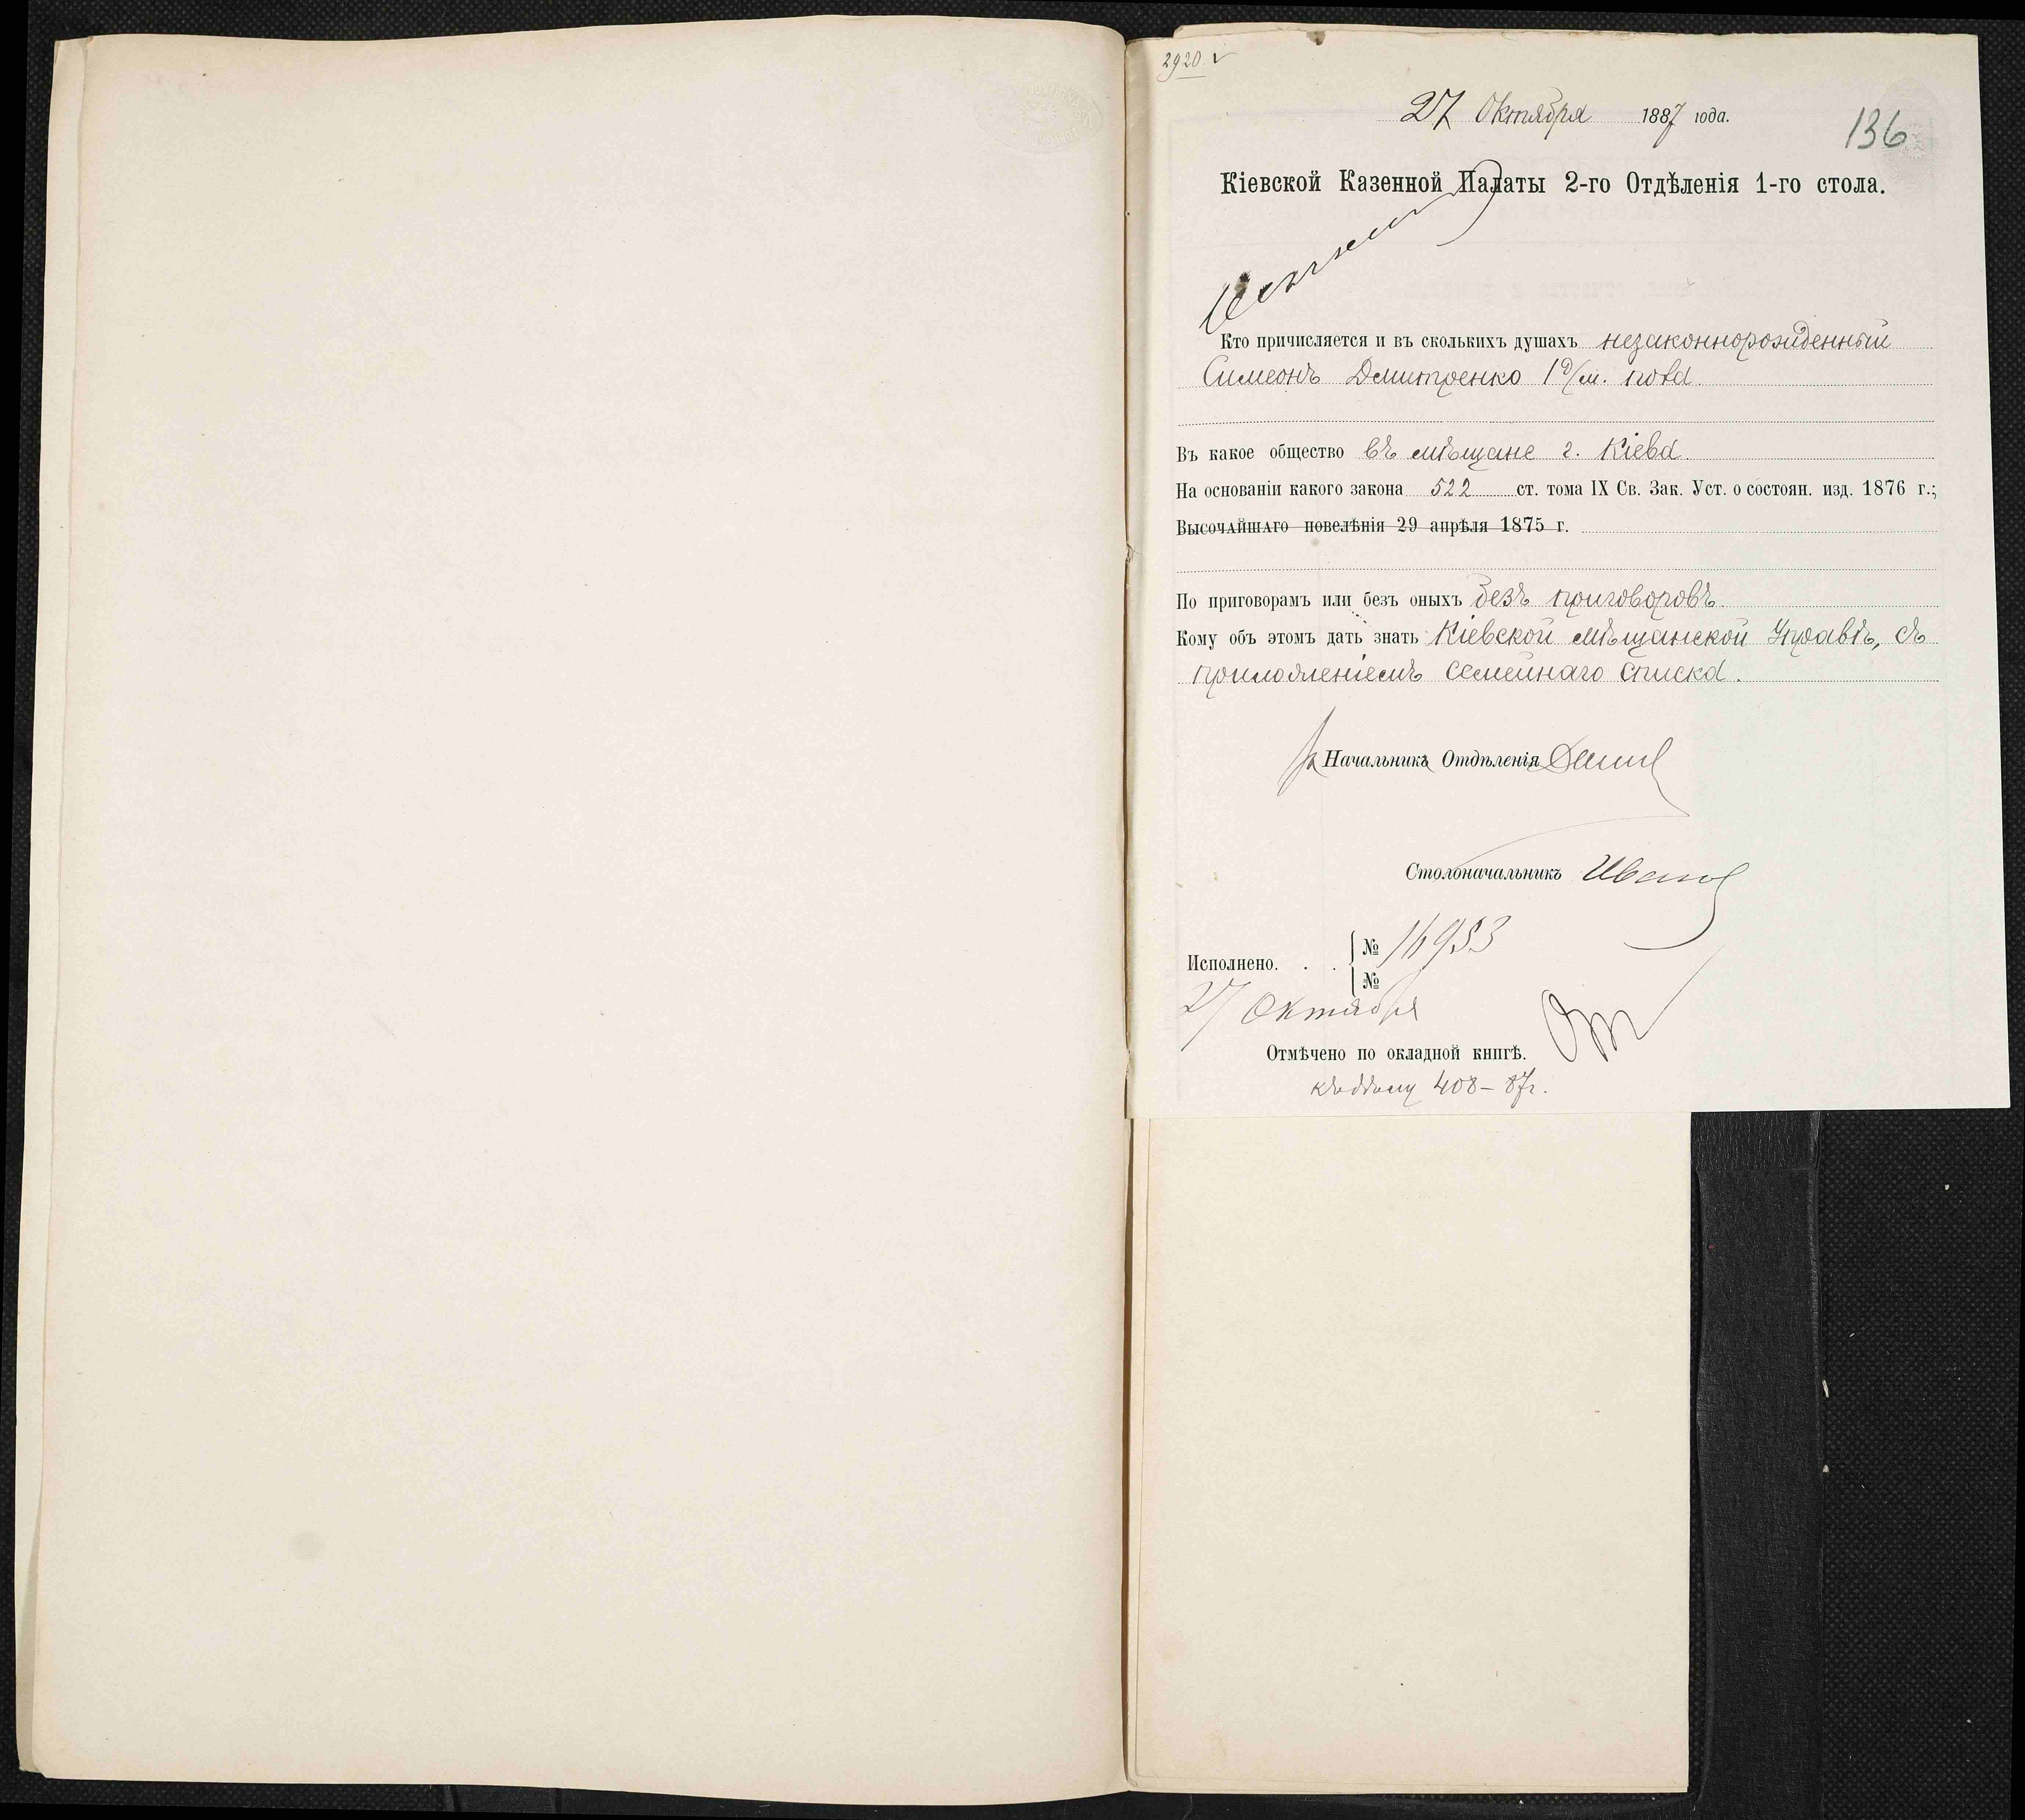 2920
27 Октября 1887 года.
136
Кіевской Казенной Палаты 2-го Отдѣленія 1-го стола.
Кто причисляется и въ сколькихъ душахъ незаконнорожденный
Симеонъ Дмитренко 1 д/м. пола.
Въ какое общество въ мѣщане г. Кіева.
На основаніи какого закона 522 ст. тома IX Св. Зак. Уст. о состоян. изд. 1876 г.;
Высочайшаго повелѣнія 29 апрѣля 1875 г.
По приговорамъ или безъ оныхъ безъ приговоровъ.
Кому объ этомъ дать знать Кіевской мѣщанской Управѣ, съ
приложеніемъ семейнаго списка.
Начальника Отдѣленія
Столоначальникъ Иванов
Исполнено. . . № 16953
№
27 Октября
Отмѣчено по окладной книгѣ.
408 – 87 г.